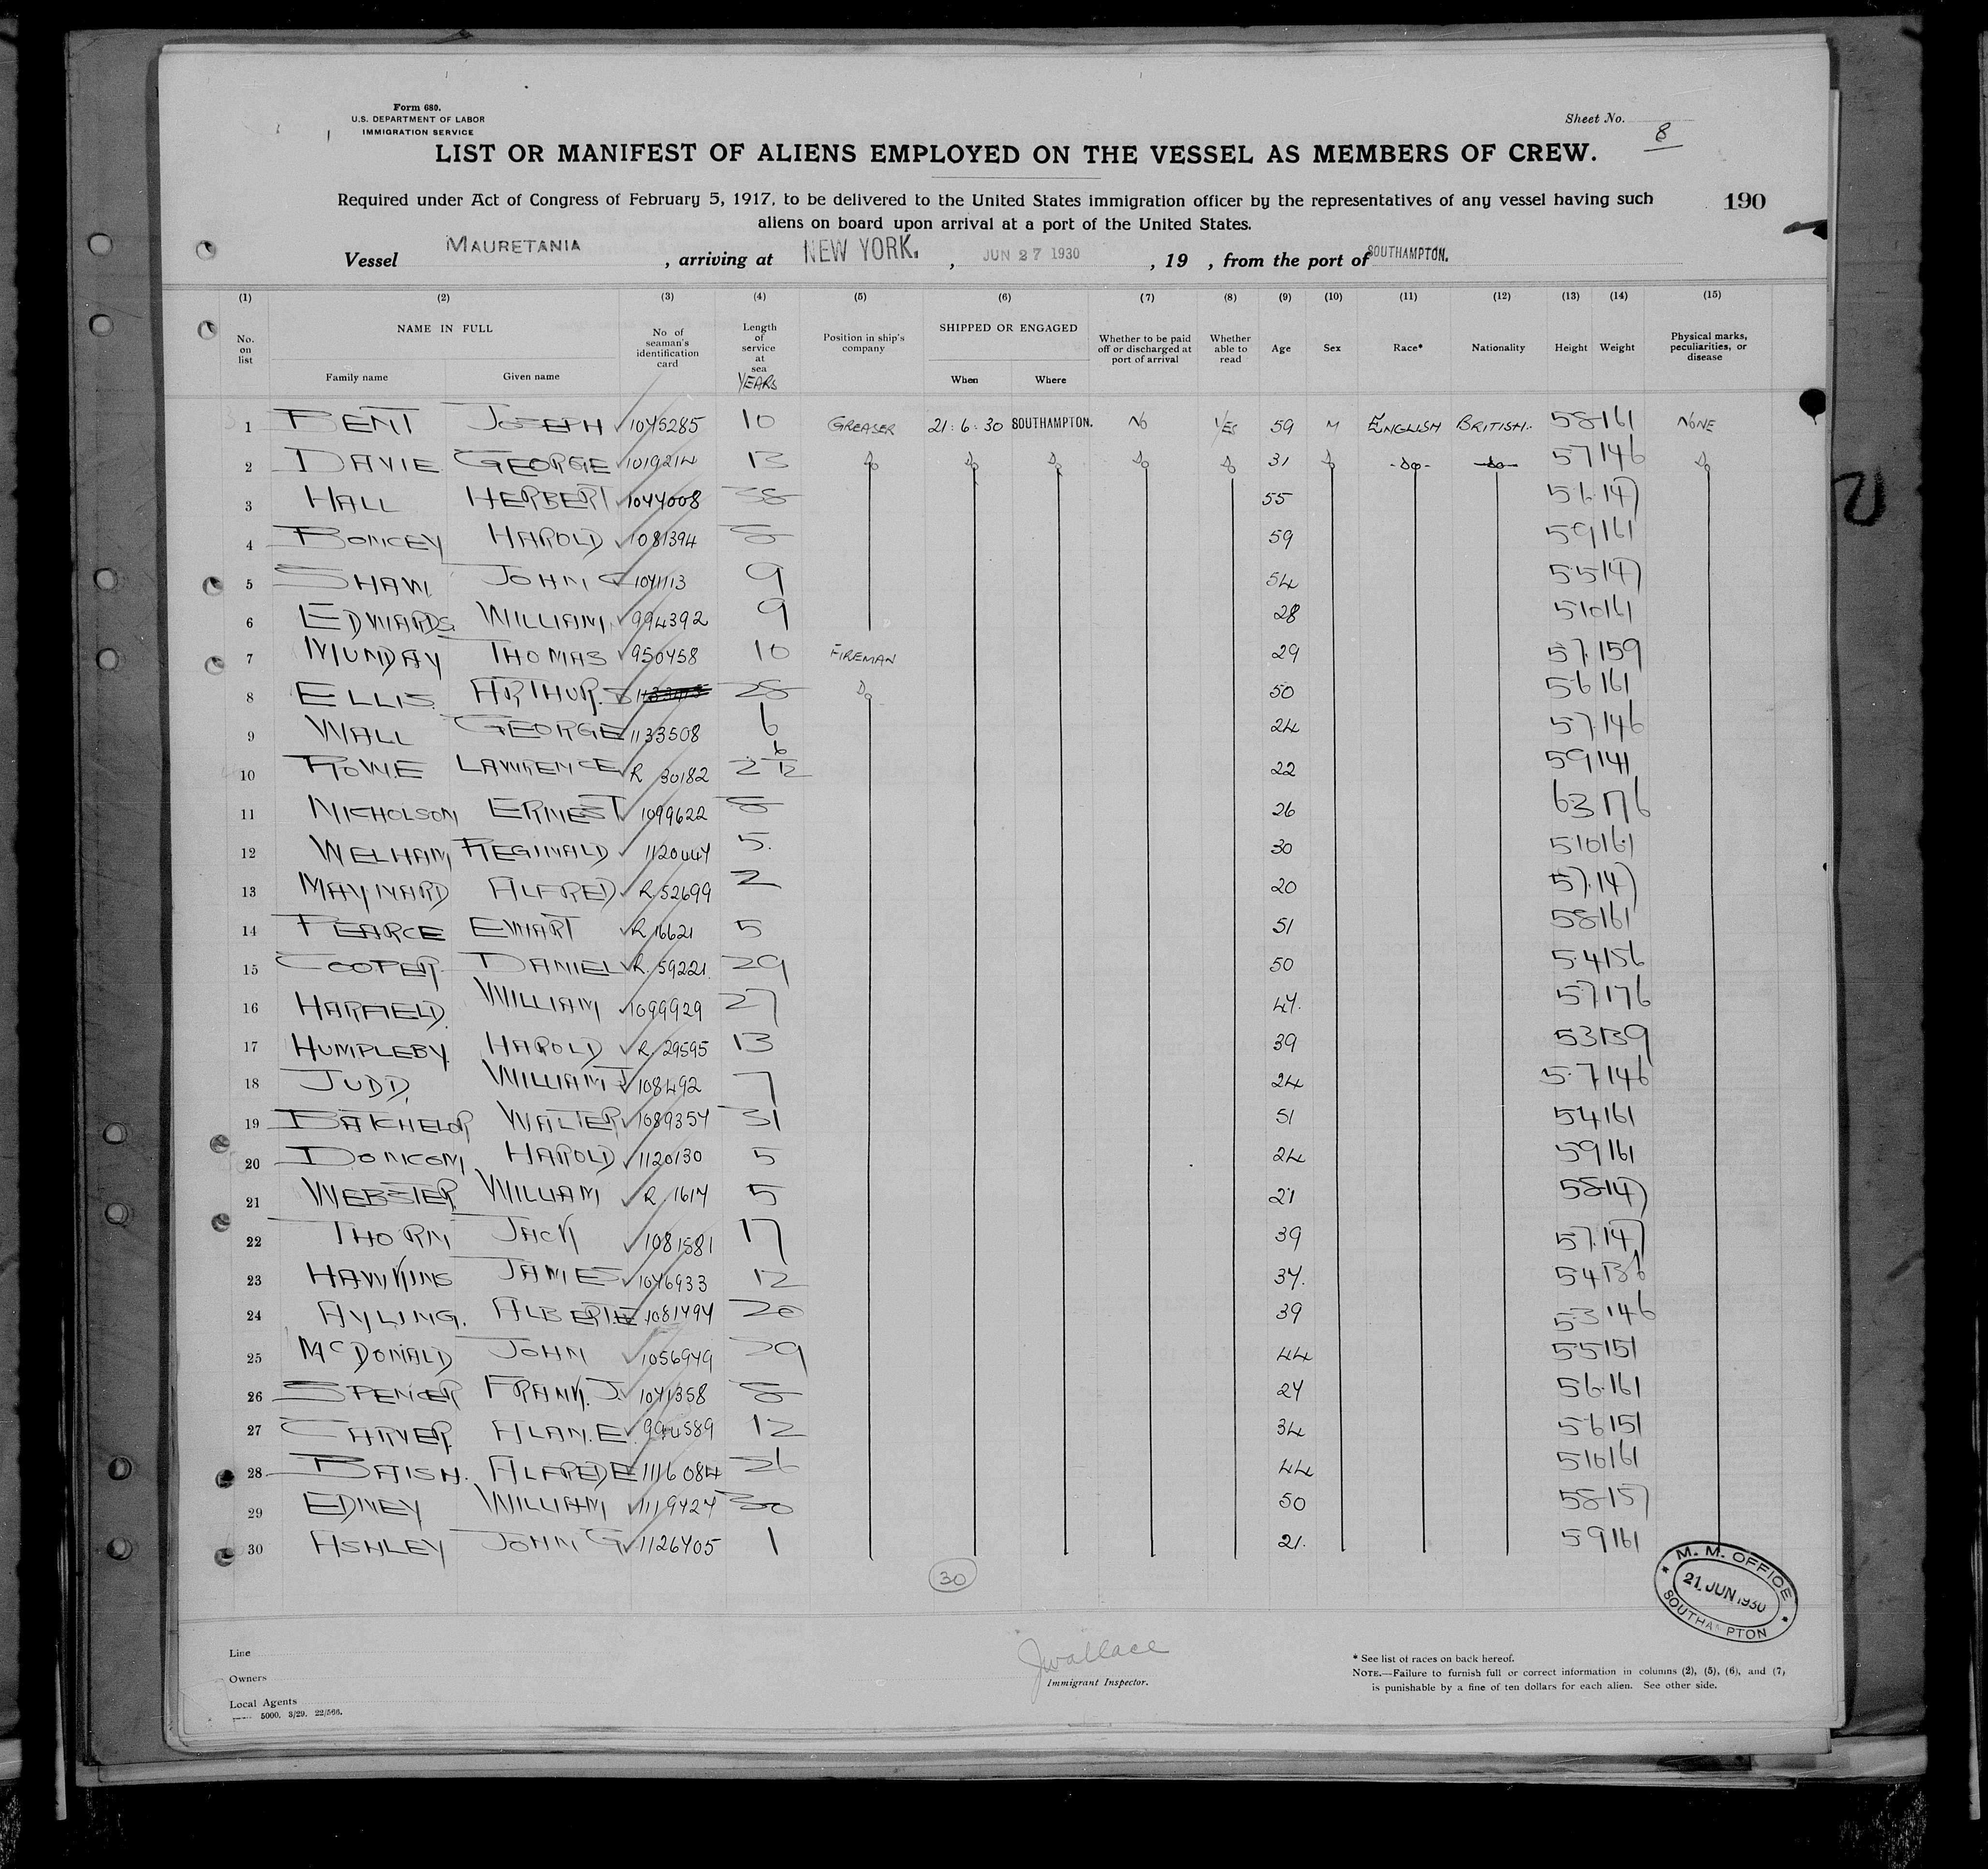 Form 680.
U.S. DEPARTMENT OF LABOR
IMMIGRATION SERVICE
Sheet No. 8
LIST OR MANIFEST OF ALIENS EMPLOYED ON THE VESSEL AS MEMBERS OF CREW.
Required under Act of Congress of February 5, 1917, to be delivered to the United States immigration officer by the representatives of any vessel having such
aliens on board upon arrival at a port of the United States.
190
Vessel MAURETANIA, arriving at NEW YORK., JUN 27 1930, 19 , from the port of SOUTHAMPTON.
(1) (2) (3) (4) (5) (6) (7) (8) (9) (10) (11) (12) (13) (14) (15)
No. on list NAME IN FULL Family name Given name No of seaman's identification card Length of service at sea YEARS Position in ship's company SHIPPED OR ENGAGED When Where Whether to be paid off or discharged at port of arrival Whether able to read Age Sex Race* Nationality Height Weight Physical marks, peculiarities, or disease
1 BENT JOSEPH 1045285 10 GREASER 21·6·30 SOUTHAMPTON. NO YES 59 M ENGLISH BRITISH. 58 161 NONE
2 DAVIE GEORGE 1019214 13 Do Do Do Do Do 31 Do -Do- -Do- 57 146 Do
3 HALL HERBERT 1044008 38 55 56 147
4 BONCEY HAROLD 1081394 8 59 59 161
5 SHAW. JOHN 9 54 55 147
6 EDWARDS WILLIAM 994392 9 28 510 161
7 MUNDAY THOMAS 950458 10 FIREMAN 29 57 159
8 ELLIS. ARTHUR. 28 Do 50 56 161
9 WALL GEORGE 1133508 6 24 57 146
10 ROWE LAWRENCE R 30182 2 6/12 22 59 141
11 NICHOLSON ERNEST 1099622 8 26 63 176
12 WELHAM REGINALD 1120447 5. 30 510 161
13 MAYNARD ALFRED R.52699 2 20 57 147
14 PEARCE EWART R 16621 5 51 58 161
15 COOPER DANIEL R. 59221. 29 50 54 156
16 HARFIELD. WILLIAM 1099929 27 47. 57 176
17 HUMPLEBY. HAROLD R. 29595 13 39 53 139
18 JUDD. WILLIAM J 108492 7 24 57 146
19 BATCHELOR WALTER 1089354 31 51 54 161
20 DONCOM HAROLD 1120130 5 24 59 161
21 WEBSTER WILLIAM R. 1614 5 21 58 147
22 THORN JACK 1081581 17 39 57 147
23 HAWKINS JAMES 1046933 12 37. 54 136
24 AYLING. ALBERT E 1081494 20 39 53 146
25 McDONALD JOHN 1056949 29 44 55 151
26 SPENCER FRANK. J. 1041358 8 27 56 161
27 CARVER ALAN. E. 994589 12 34 56 151
28 BAISH. ALFRED E 1116084 26 44 510 161
29 EDNEY WILLIAM 1119424 30 50 58 157
30 ASHLEY JOHN G 1126405 1 21. 59 161
30
M. M. OFFICE
21 JUN 1930
SOUTHAMPTON
Line
Owners
Local Agents
5000. 3/29. 22/566.
JWallace
Immigrant Inspector.
* See list of races on back hereof.
NOTE.—Failure to furnish full or correct information in columns (2), (5), (6), and (7,
is punishable by a fine of ten dollars for each alien. See other side.